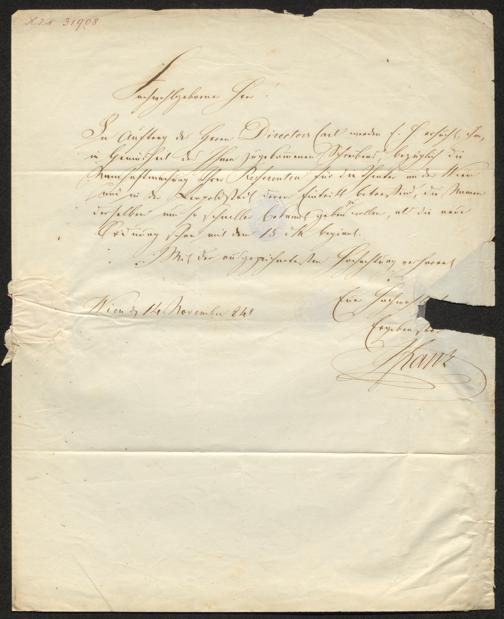 H.I.N. 31908
Hochwohlgeborner Herr!
Im Auftrag des Herrn Directors Carl werden E. H. ersucht, ihm,
in Gemäßheit des Ihnen zugekommenen Schreibens, bezüglich der
Namhaftmachung Ihres Referenten für die Theater an der Wien
und in der Leopoldstadt deren Eintritt betreffend, den Namen
derselben um so schneller bekannt geben zu wollen, als die neue
Ordnung schon mit dem 15 d M. beginnt.
Mit der ausgezeichnetesten Hochachtung verharret
Euer Hochwohl
Wien d 14 November 841
Ergebenster
Franz